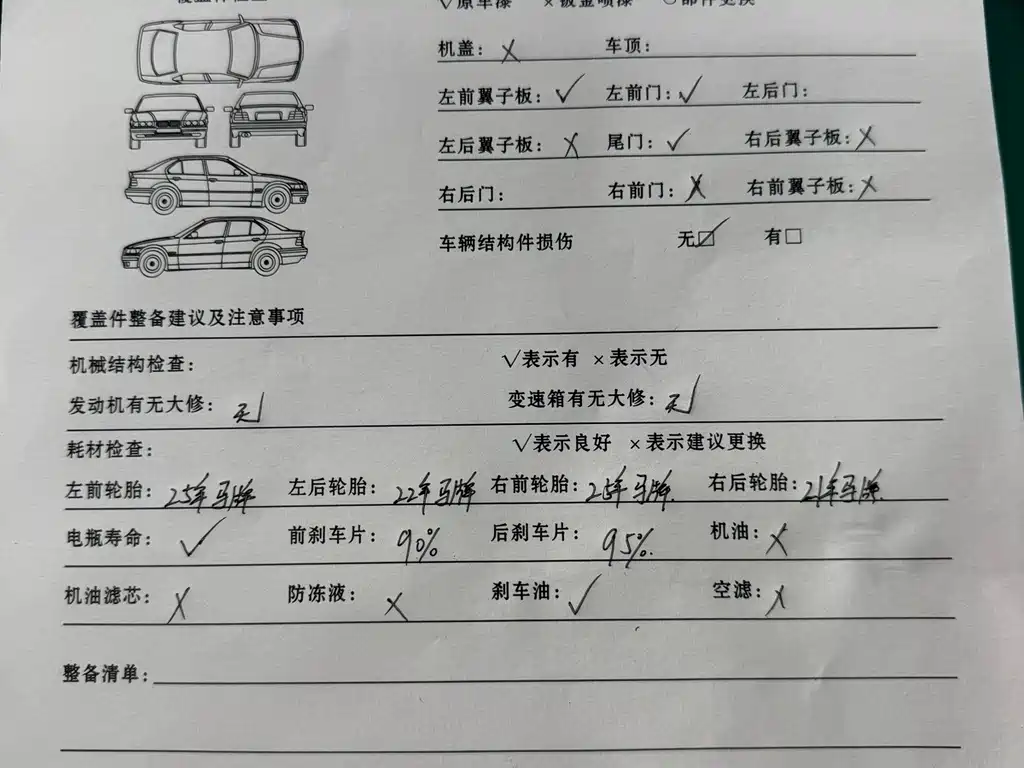 √原车漆 ×钣金喷漆 ○部件更换
机盖: × 车顶:
左前翼子板: √ 左前门: √ 左后门:
左后翼子板: × 尾门: √ 右后翼子板: ×
右后门: 右前门: × 右前翼子板: ×
车辆结构件损伤 无☑ 有□
覆盖件整备建议及注意事项
机械结构检查: √表示有 ×表示无
发动机有无大修: 无 变速箱有无大修: 无
耗材检查: √表示良好 ×表示建议更换
左前轮胎: 25年马牌 左后轮胎: 22年马牌 右前轮胎: 25年马牌. 右后轮胎: 21年马牌.
电瓶寿命: √ 前刹车片: 90% 后刹车片: 95%. 机油: ×
机油滤芯: × 防冻液: × 刹车油: √ 空滤: ×
整备清单: